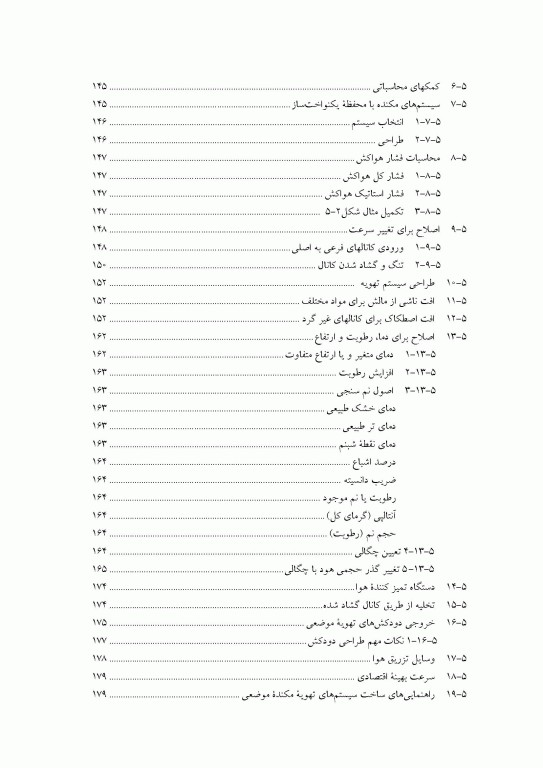 ۵-۶ کمکهای محاسباتی ۱۴۵
۵-۷ سیستم‌های مکنده با محفظهٔ یکنواخت‌ساز ۱۴۵
۵-۷-۱ انتخاب سیستم ۱۴۶
۵-۷-۲ طراحی ۱۴۶
۵-۸ محاسبات فشار هواکش ۱۴۷
۵-۸-۱ فشار کل هواکش ۱۴۷
۵-۸-۲ فشار استاتیک هواکش ۱۴۷
۵-۸-۳ تکمیل مثال شکل ۲-۵ ۱۴۷
۵-۹ اصلاح برای تغییر سرعت ۱۴۸
۵-۹-۱ ورودی کانالهای فرعی به اصلی ۱۴۸
۵-۹-۲ تنگ و گشاد شدن کانال ۱۵۰
۵-۱۰ طراحی سیستم تهویه ۱۵۲
۵-۱۱ افت ناشی از مالش برای مواد مختلف ۱۵۲
۵-۱۲ افت اصطکاک برای کانالهای غیر گرد ۱۵۲
۵-۱۳ اصلاح برای دما، رطوبت و ارتفاع ۱۶۲
۵-۱۳-۱ دمای متغیر و یا ارتفاع متفاوت ۱۶۲
۵-۱۳-۲ افزایش رطوبت ۱۶۳
۵-۱۳-۳ اصول نم سنجی ۱۶۳
دمای خشک طبیعی ۱۶۳
دمای تر طبیعی ۱۶۳
دمای نقطهٔ شبنم ۱۶۳
درصد اشباع ۱۶۴
ضریب دانسیته ۱۶۴
رطوبت یا نم موجود ۱۶۴
آنتالپی (گرمای کل) ۱۶۴
حجم نم (رطوبت) ۱۶۴
۵-۱۳-۴ تعیین چگالی ۱۶۴
۵-۱۳-۵ تغییر گذر حجمی هود با چگالی ۱۶۵
۵-۱۴ دستگاه تمیز کنندهٔ هوا ۱۷۴
۵-۱۵ تخلیه از طریق کانال گشاد شده ۱۷۴
۵-۱۶ خروجی دودکش‌های تهویهٔ موضعی ۱۷۵
۵-۱۶-۱ نکات مهم طراحی دودکش ۱۷۷
۵-۱۷ وسایل تزریق هوا ۱۷۸
۵-۱۸ سرعت بهینهٔ اقتصادی ۱۷۹
۵-۱۹ راهنمایی‌های ساخت سیستم‌های تهویهٔ مکندهٔ موضعی ۱۷۹